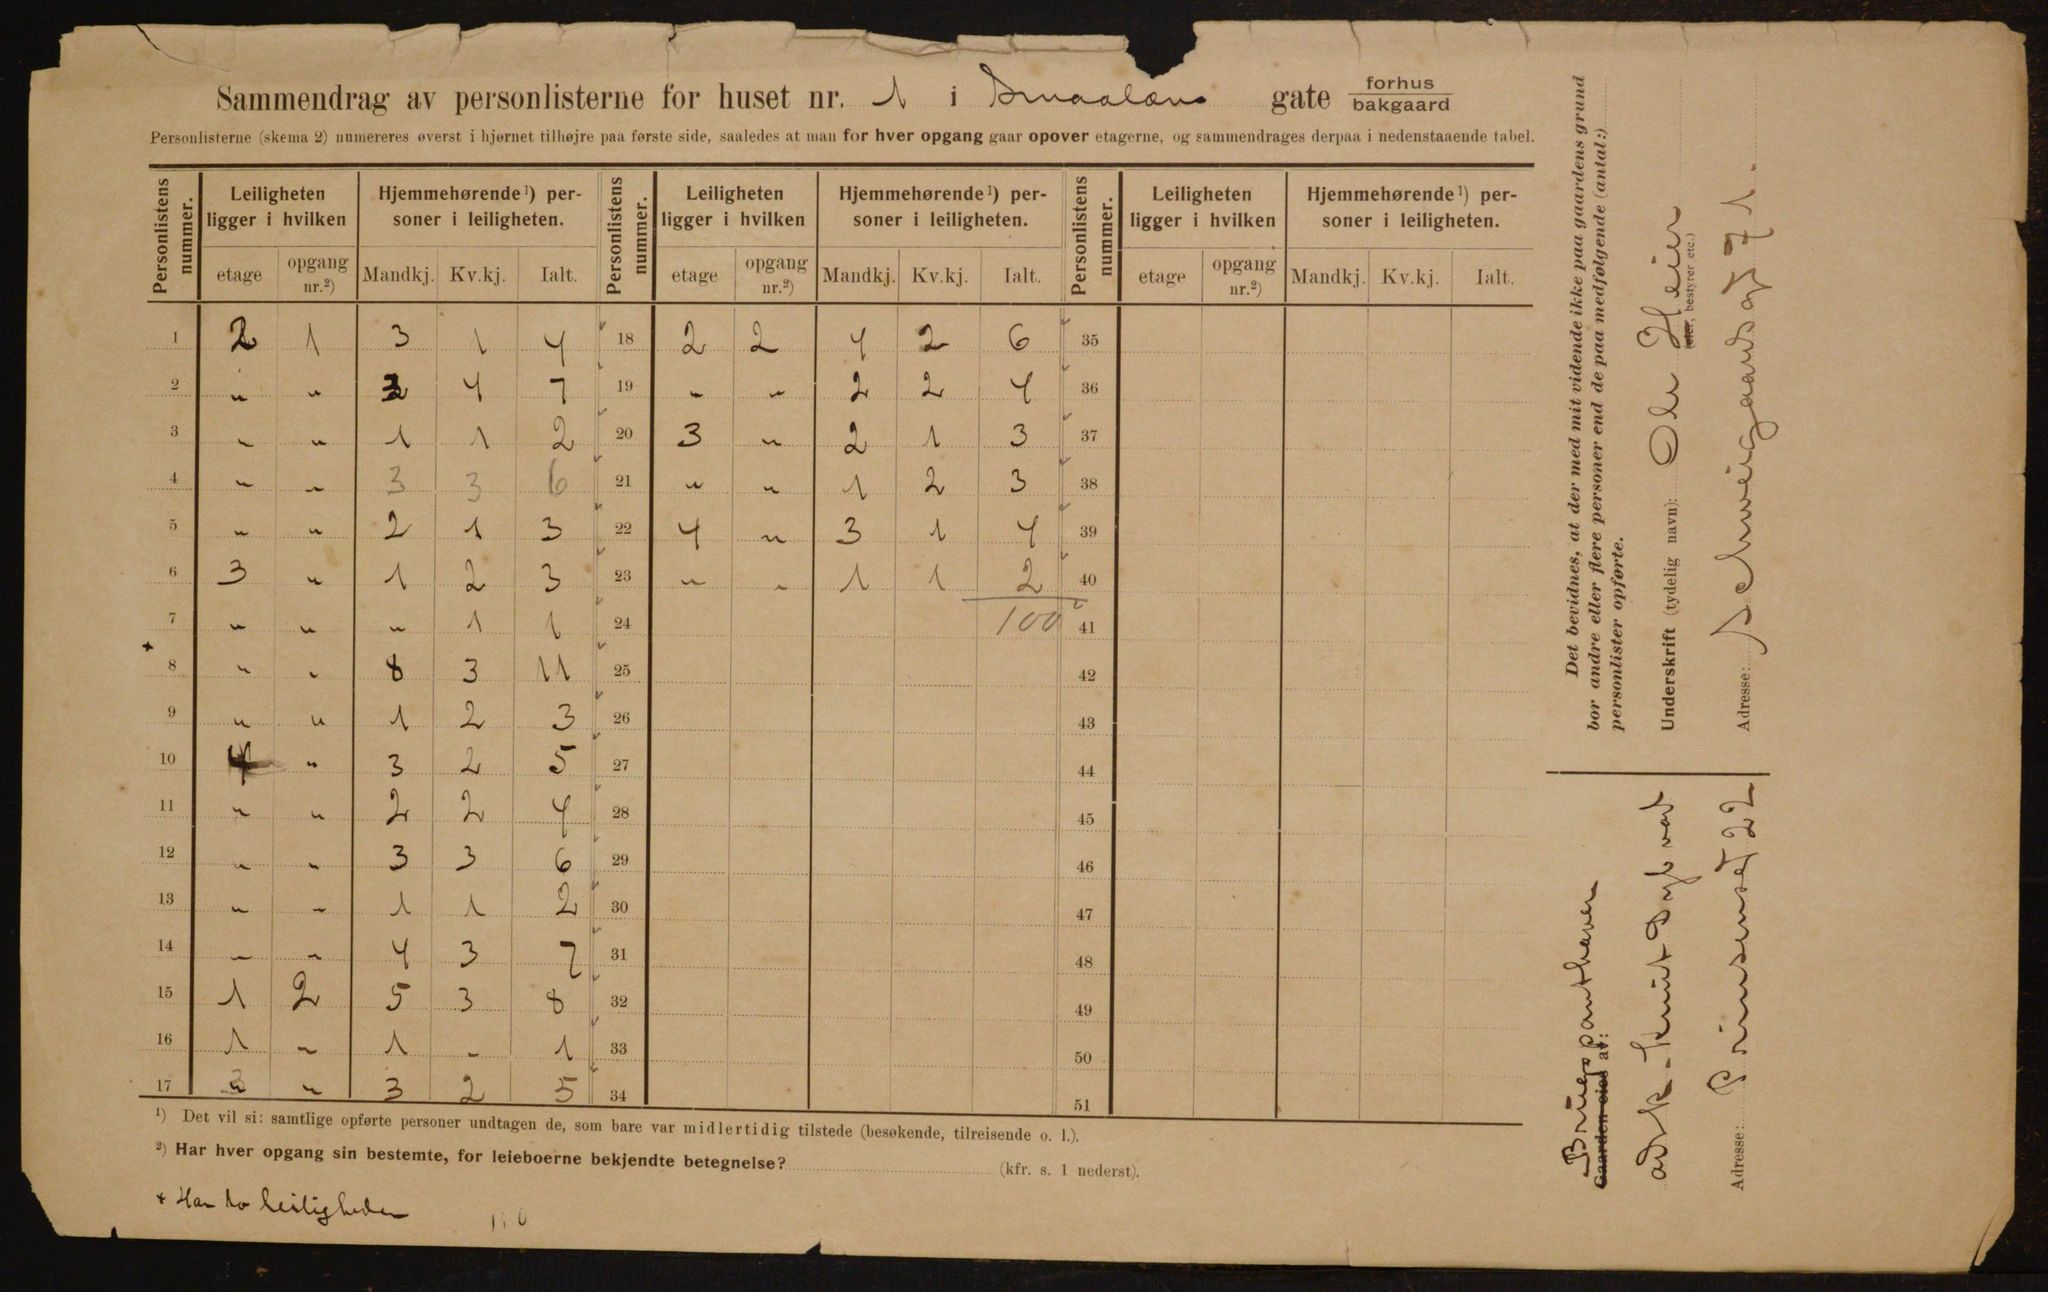 Sammendrag av personlisterne for huset nr. 1 i Smaalens gate forhus bakgaard
Personlisterne (skema 2) numereres øverst i hjørnet tilhøjre paa første side, saaledes at man for hver opgang gaar opover etagerne, og sammendrages derpaa i nedenstaaende tabel.
Personlistens nummer. Leiligheten ligger i hvilken Hjemmehørende¹) personer i leiligheten. Personlistens nummer. Leiligheten ligger i hvilken Hjemmehørende¹) personer i leiligheten. Personlistens nummer. Leiligheten ligger i hvilken Hjemmehørende¹) personer i leiligheten.
etage opgang nr.²) Mandkj. Kv.kj. Ialt. etage opgang nr.²) Mandkj. Kv.kj. Ialt. etage opgang nr.²) Mandkj. Kv.kj. Ialt.
1 2 1 3 1 4 18 2 2 4 2 6 35
2 „ „ 3 4 7 19 „ „ 2 2 4 36
3 „ „ 1 1 2 20 3 „ 2 1 3 37
4 „ „ 3 3 6 21 „ „ 1 2 3 38
5 „ „ 2 1 3 22 4 „ 3 1 4 39
6 3 „ 1 2 3 23 „ „ 1 1 2 40
7 „ „ „ 1 1 24 100 41
+ 8 „ „ 8 3 11 25 42
9 „ „ 1 2 3 26 43
10 4 „ 3 2 5 27 44
11 „ „ 2 2 4 28 45
12 „ „ 3 3 6 29 46
13 „ „ 1 1 2 30 47
14 „ „ 4 3 7 31 48
15 1 2 5 3 8 32 49
16 1 „ 1 - 1 33 50
17 „ „ 3 2 5 34 51
¹) Det vil si: samtlige opførte personer undtagen de, som bare var midlertidig tilstede (besøkende, tilreisende o. l.).
²) Har hver opgang sin bestemte, for leieboerne bekjendte betegnelse? (kfr. s. 1 nederst).
+ Har to leiligheder
Det bevidnes, at der med mit vidende ikke paa gaardens grund
bor andre eller flere personer end de paa medfølgende (antal:)
personlister opførte.
Underskrift (tydelig navn): Ole Heier
(eier, bestyrer etc.)
Adresse: Schweigaardsg 71.
Brugspanthaver
Gaarden eies av:
ark. Knut
Adresse: Prinsensg 22